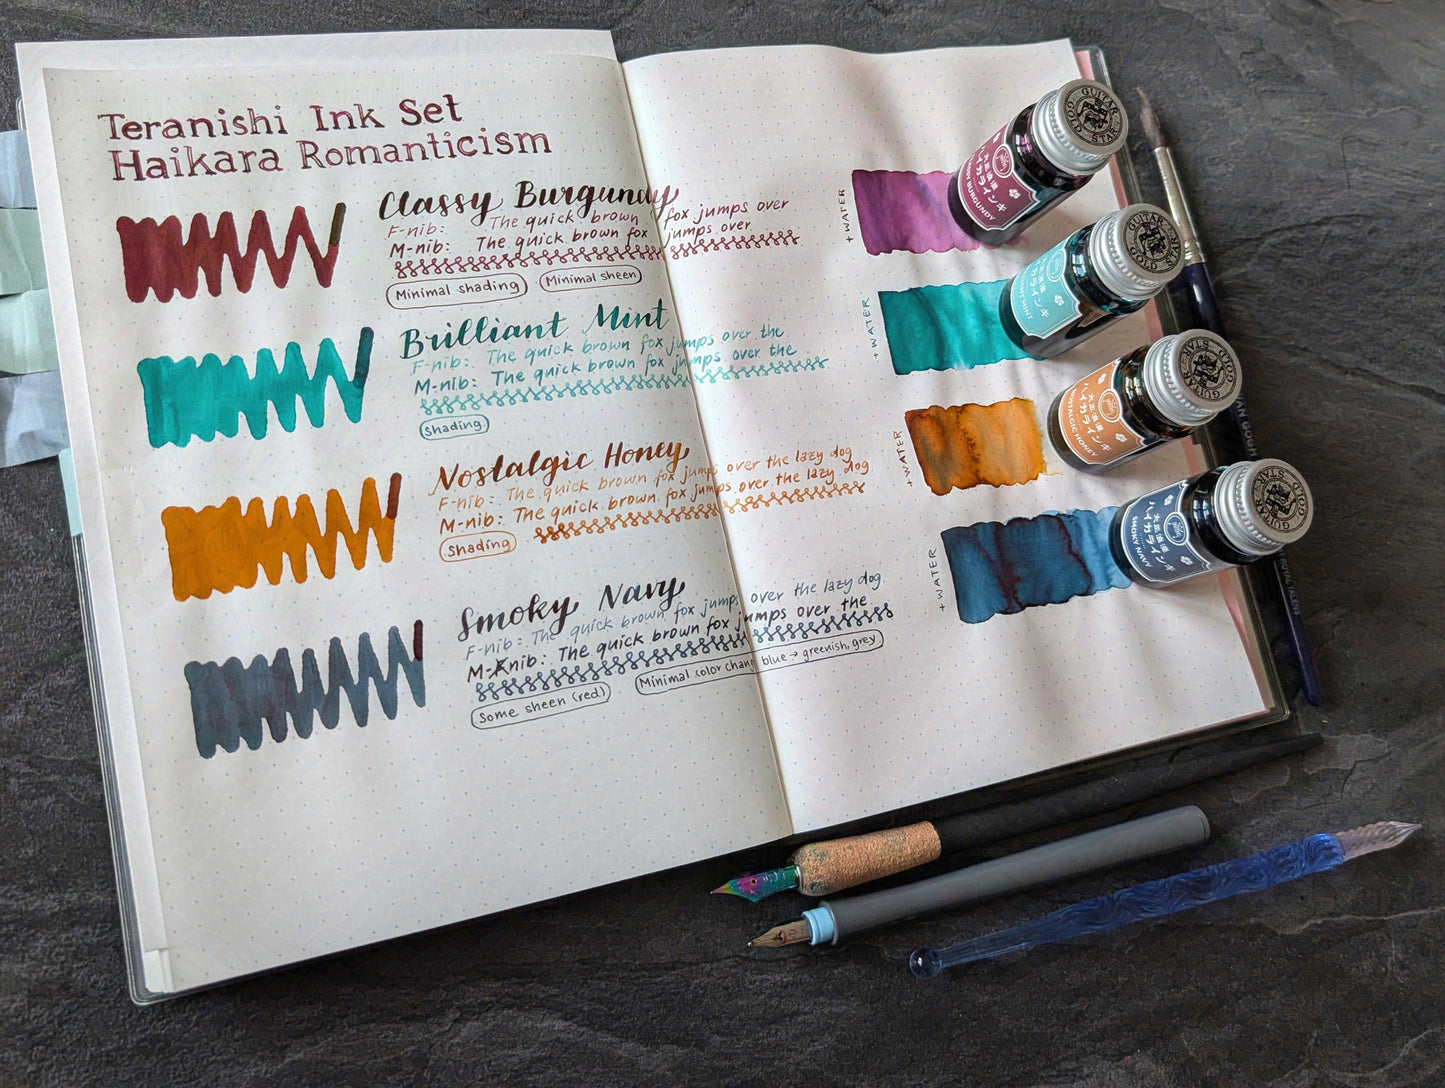 Teranishi Ink Set
Haikara Romanticism
Classy Burgundy
F-nib: The quick brown fox jumps over
M-nib: The quick brown fox jumps over
Minimal shading
Minimal sheen
+ WATER
Brilliant Mint
F-nib: The quick brown fox jumps over the
M-nib: The quick brown fox jumps over the
Shading
+ WATER
Nostalgic Honey
F-nib: The quick brown fox jumps over the lazy dog
M-nib: The quick brown fox jumps over the lazy dog.
Shading
+ WATER
Smoky Navy
F-nib: The quick brown fox jumps over the lazy dog
M-nib: The quick brown fox jumps over the
Some sheen (red)
Minimal color chan blue → greenish, grey
+ WATER
GUITAR
GOLD STAR
大正浪漫
ハイカラインキ
BURGUNDY
GUITAR
GOLD STAR
大正浪漫
ハイカラインキ
MINT
GUITAR
GOLD STAR
大正浪漫
ハイカラインキ
NOSTALGIC HONEY
GUITAR
GOLD STAR
大正浪漫
ハイカラインキ
SMOKY NAVY
VAN GOGH
ROYAL TALENS